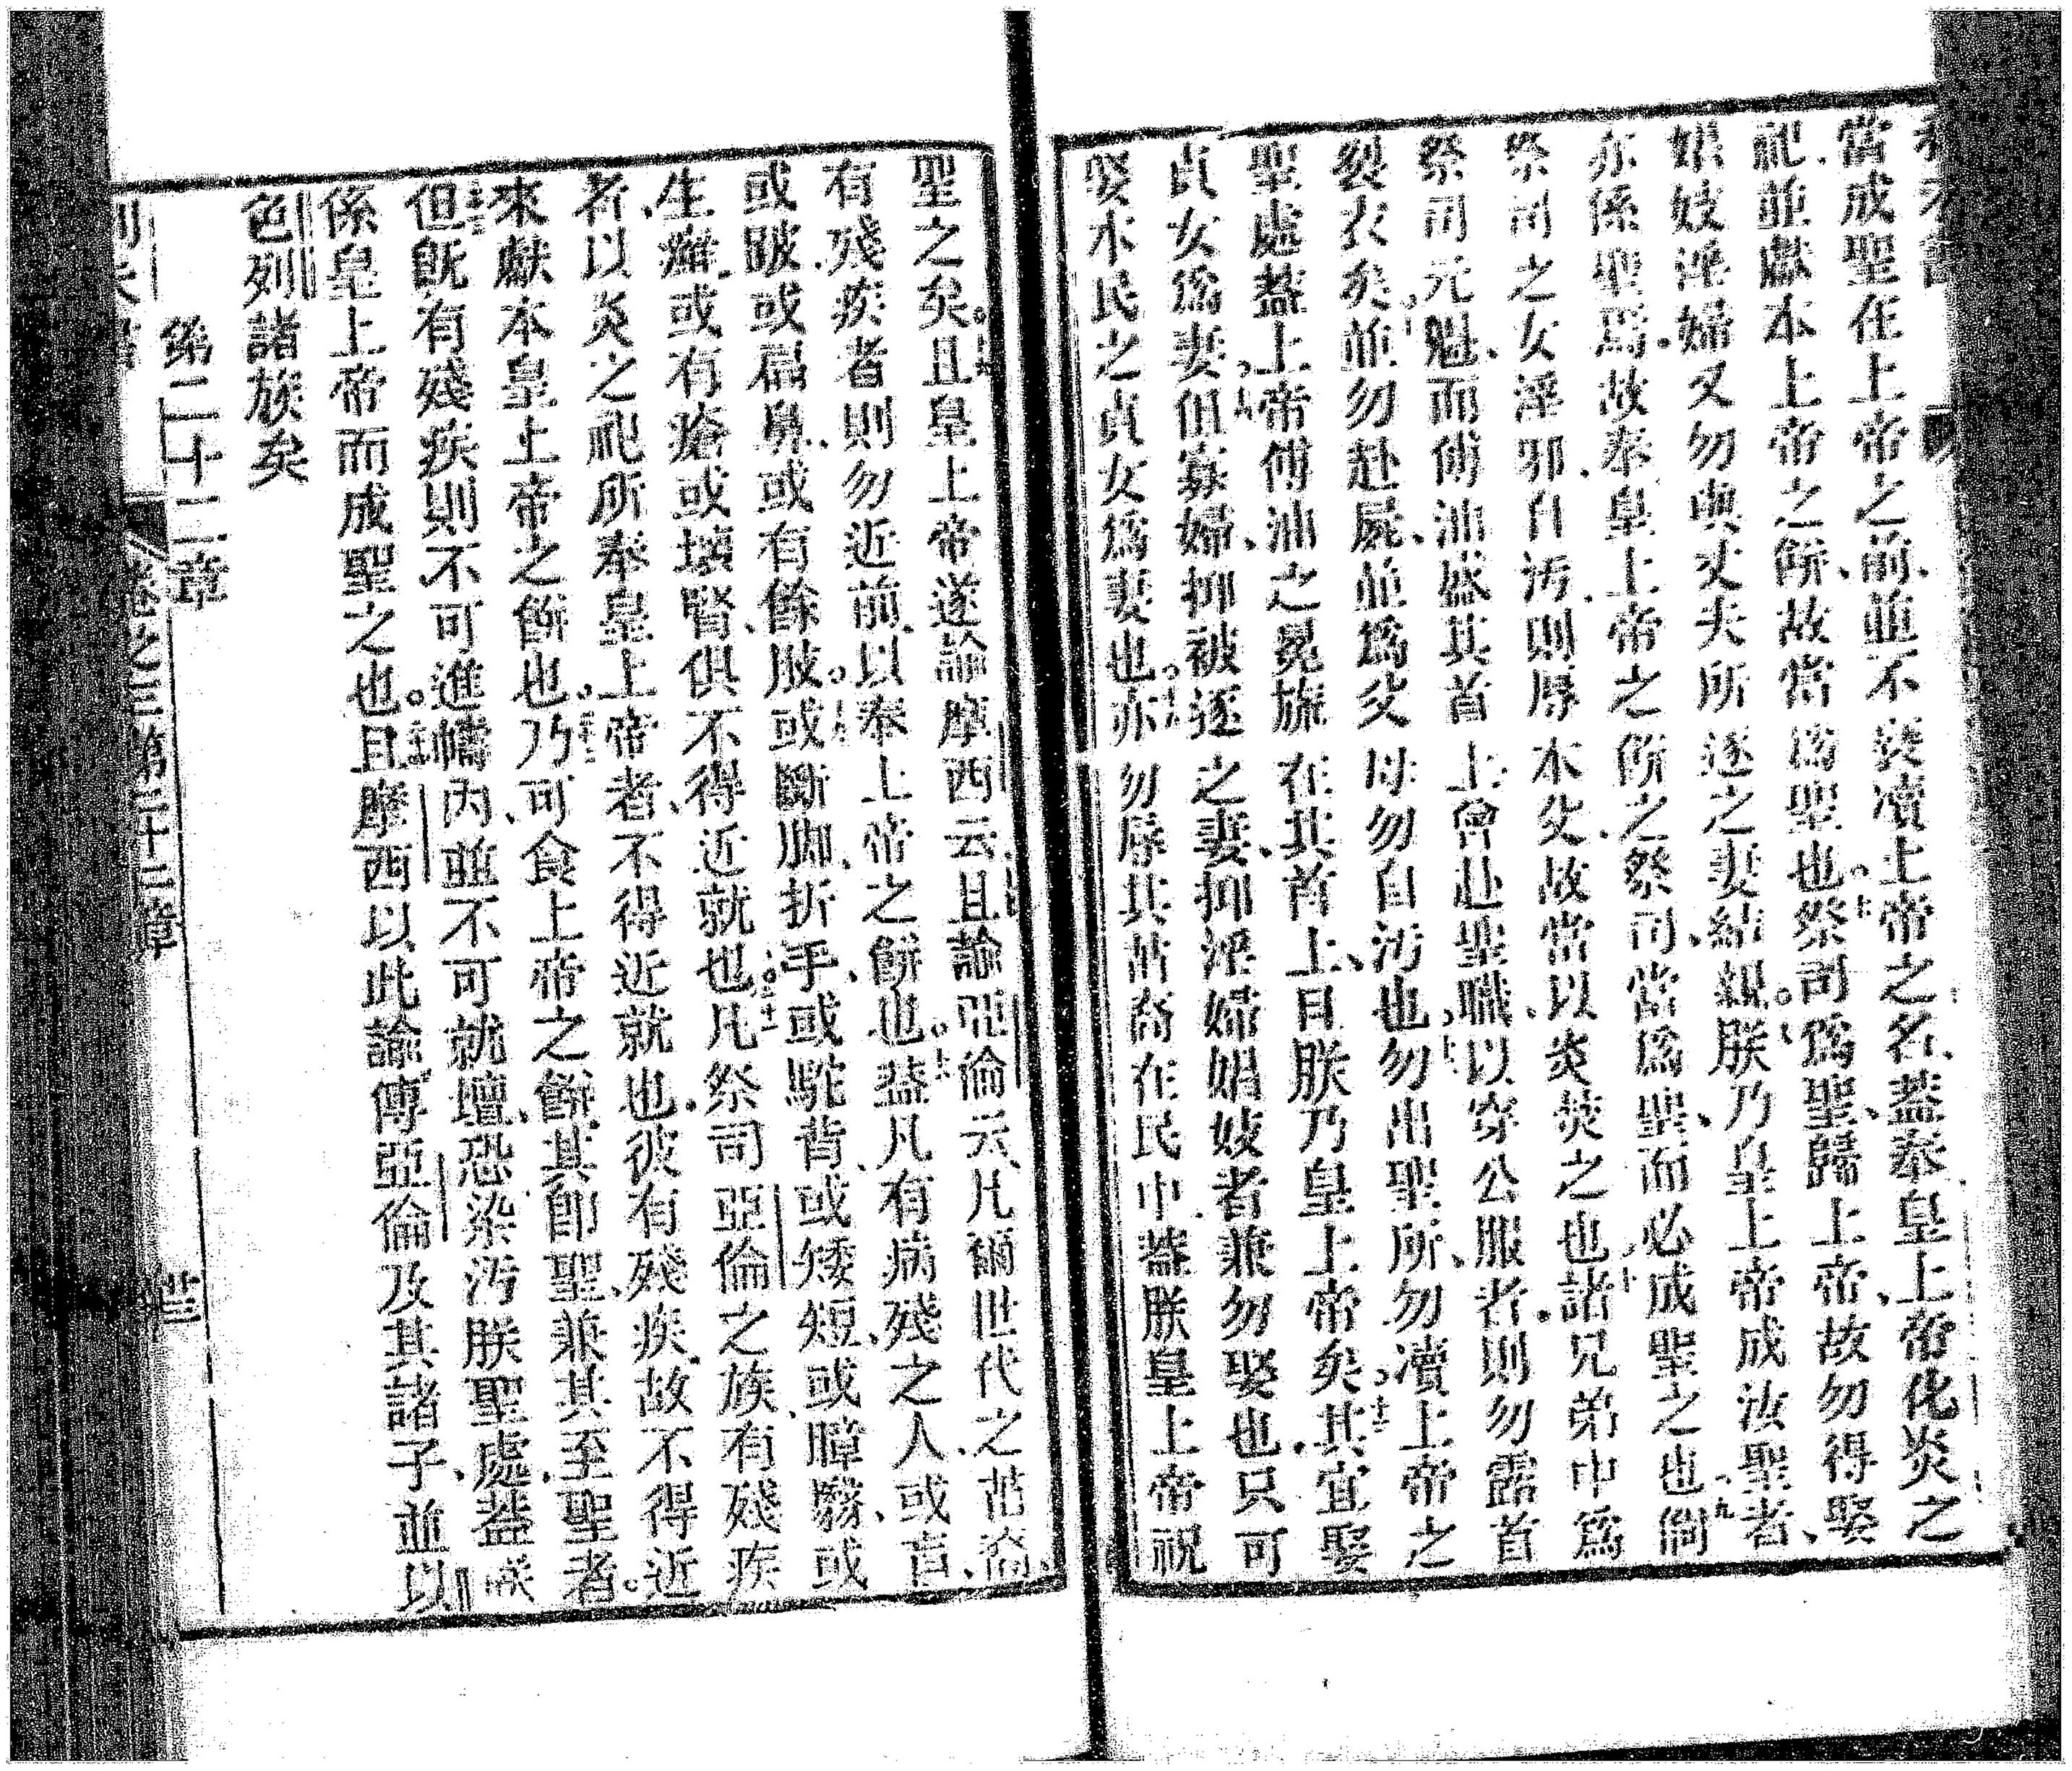 當成聖在上帝之前、並不褻凟上帝之名、蓋奉皇上帝化炎之
祀、並獻本上帝之餅、故當爲聖也。祭司爲聖、歸上帝、故勿得娶
娼妓淫婦、又勿與丈夫所逐之妻結親。朕乃皇上帝成汝聖者、
亦係聖焉、故奉皇上帝之餅之祭司、當爲聖而必成聖之也、倘
祭司之女淫邪、自汚、則辱本父、故當以炎焚之也、諸兄弟中爲
祭司元魁、而傅油盛其首上、曾赴聖職、以穿公服者、則勿露首
裂衣矣、並勿赴屍、並爲父母勿自汚也、勿出聖所、勿凟上帝之
聖處、蓋上帝傅油之冕旒在其首上、且朕乃皇上帝矣、其宜娶
貞女爲妻、但寡婦、抑被逐之妻、抑淫婦娼妓者、兼勿娶也、只可
娶本民之貞女爲妻也。亦勿辱其苗裔在民中、蓋朕皇上帝祝
聖之矣。且皇上帝遂諭摩西云、且諭亞倫云、凡爾世代之苗裔、
有殘疾者、則勿近前、以奉上帝之餅也。蓋凡有病殘之人、或盲、
或跛、或匾鼻、或有餘肢。或斷脚、折手、或駝背、或矮短、或朦翳、或
生癬、或有瘡、或壞腎、俱不得近就也。凡祭司亞倫之族、有殘疾
者、以炎之祀所奉皇上帝者、不得近就也、彼有殘疾、故不得近
來獻本皇上帝之餅也。乃可食上帝之餅、其卽聖、兼其至聖者。
但旣有殘疾、則不可進幬內、並不可就壇、恐染汚朕聖處、蓋朕
係皇上帝而成聖之也。且摩西以此諭傳亞倫及其諸子、並以
色列諸族矣
第二十二章
卷之三第二十二章 廿三